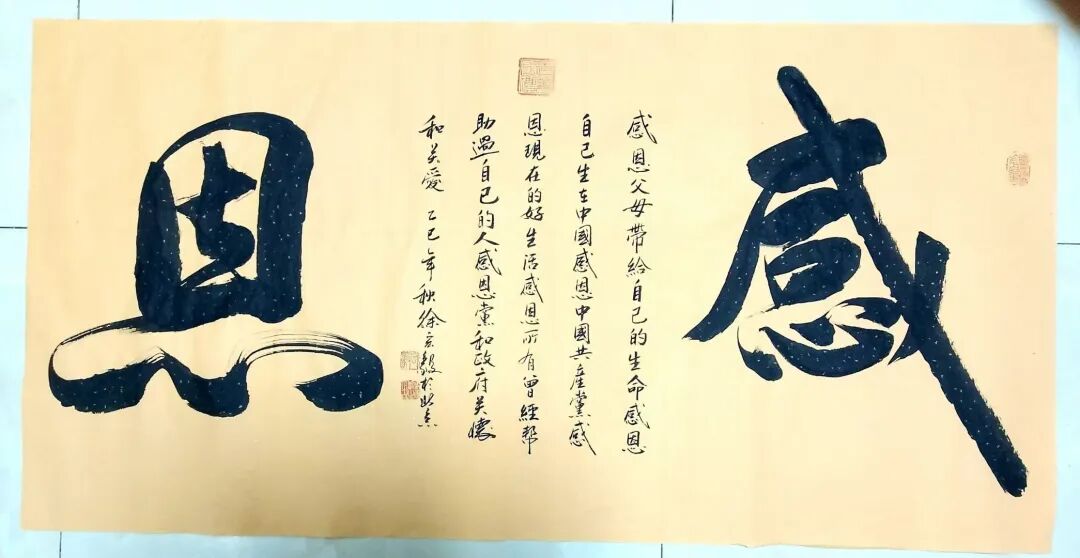 感
感恩父母帶給自己的生命感恩
自己生在中國感恩中國共產黨感
恩現在的好生活感恩所有曾經帮
助過自己的人感恩黨和政府关懷
和关愛 乙巳年秋徐毅於北京
恩